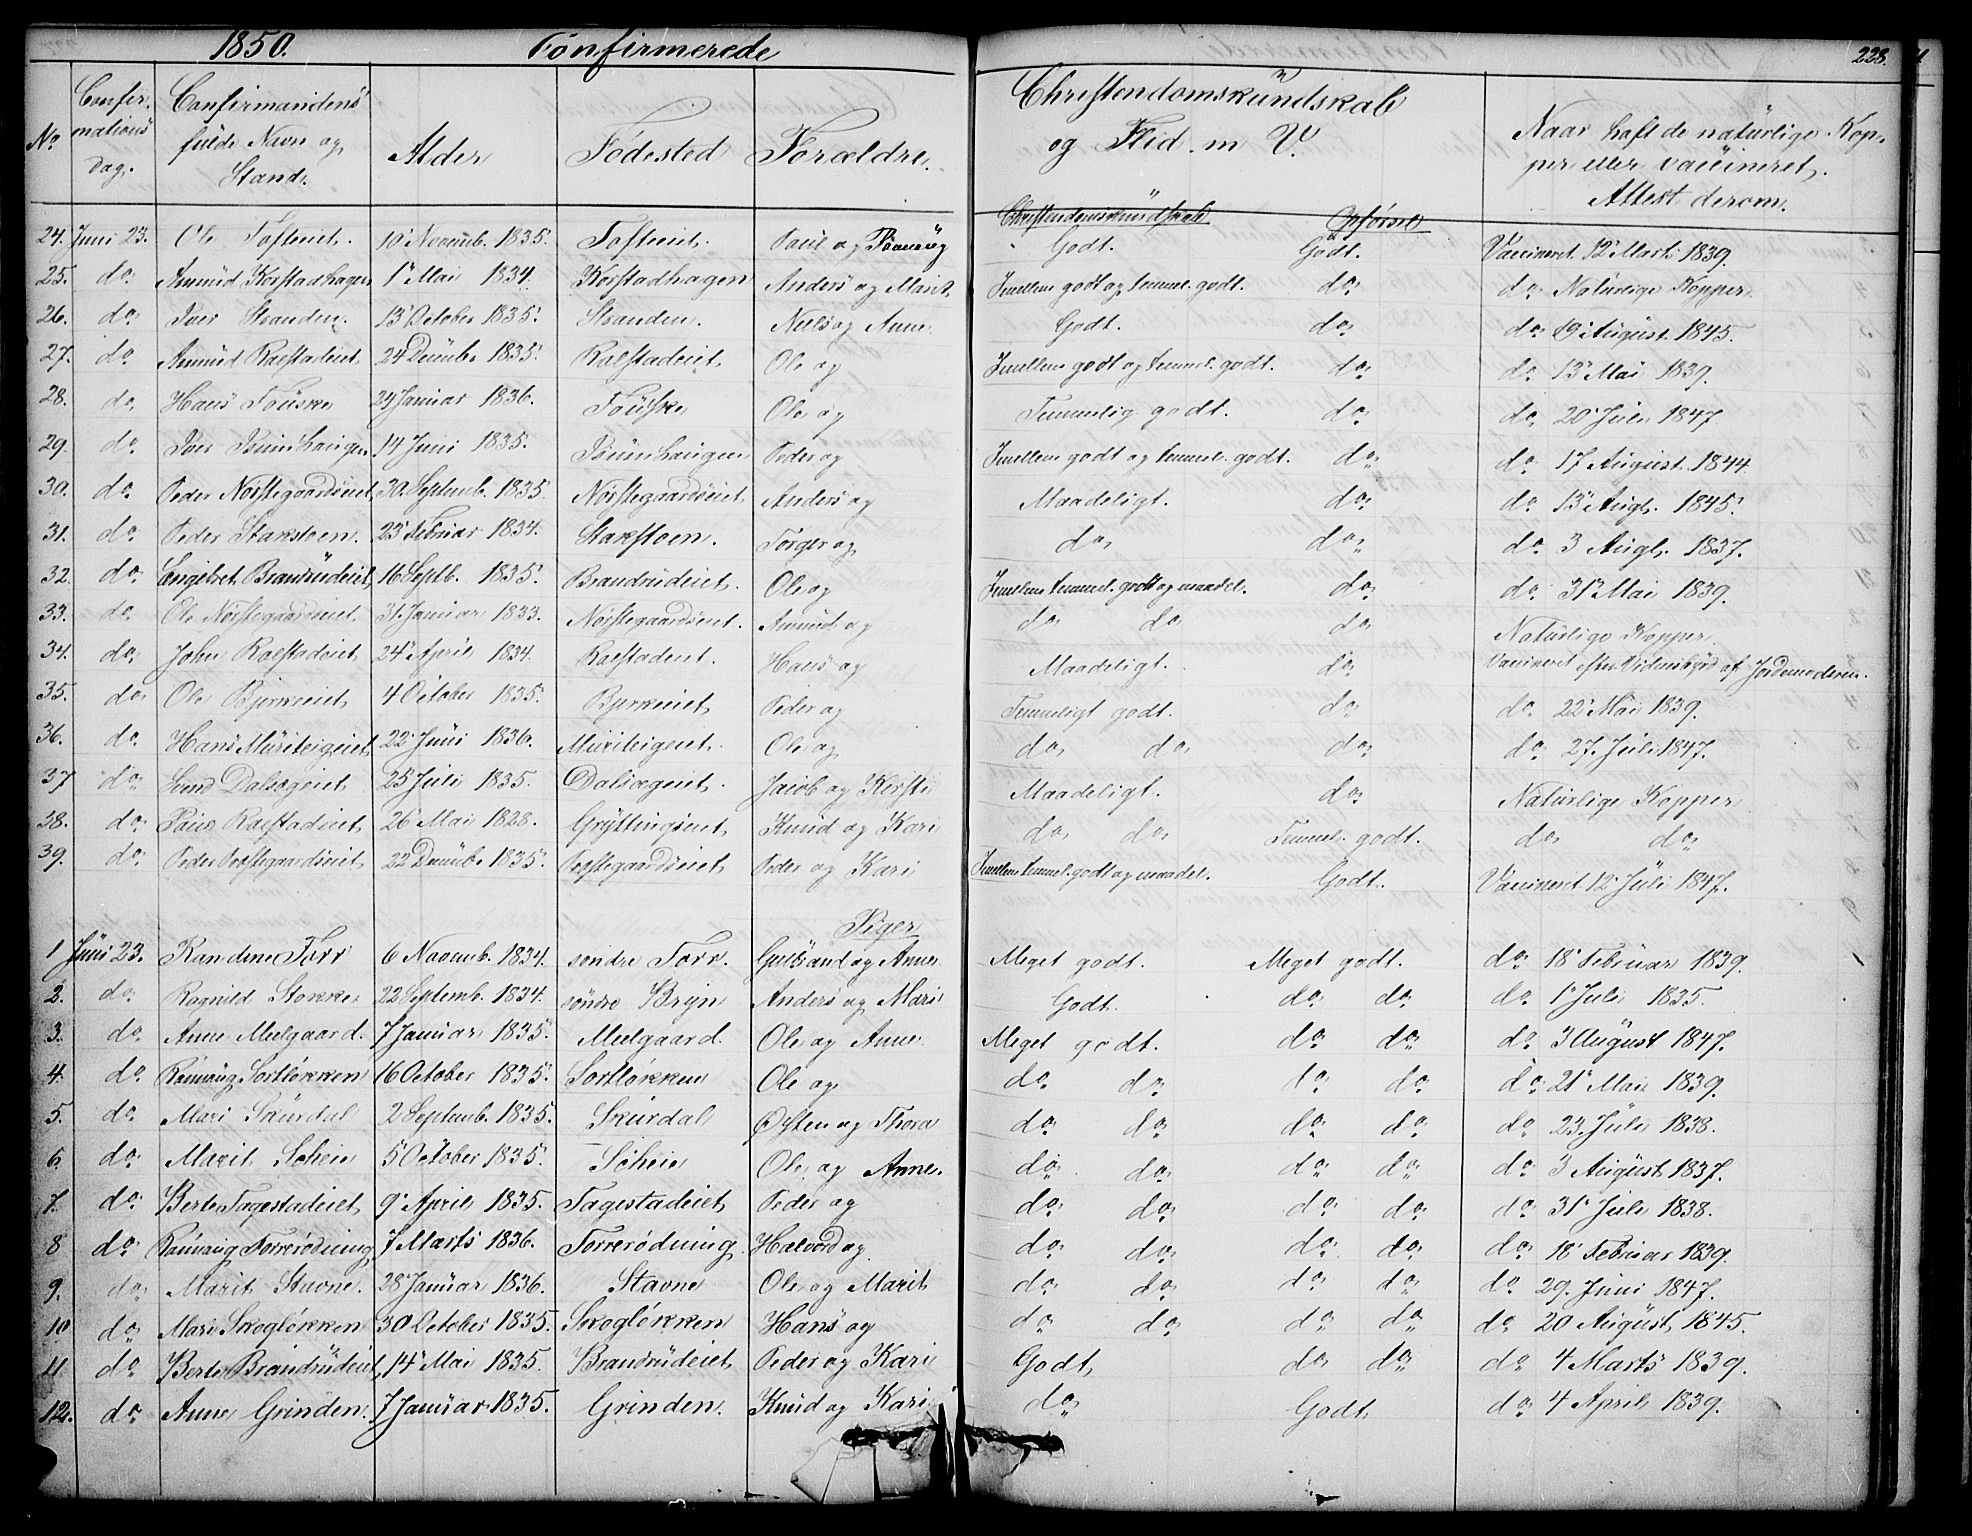 1850. Confirmerede 228.
No Confirmations Dag. Confirmandens fulde Navn og Stand. Alder Fødested Forældre. Christendomskundskab og Flid. m V. Naar haft de natürlige Kopper eller vaccineret. Attest derom.
Christendomskundskab Opførsel
24. Juni 23. Ole Tofteeiet. 10 Novemb. 1835. Tofteeiet. Poul og Rønnaug Godt. Godt. Vaccineret 12 Marts 1839.
25. do Amund Korstadhagen 1 Mai 1834. Korstadhagen Anders og Marit Imellem godt og temmel. godt. do do Natürlige Kopper
26. do Iver Stranden. 13 October 1835. Stranden. Neels og Anne Godt. do do 19 August 1845.
27. do Amund Ralstadeiet 24 Decmbr 1835. Ralstadeiet Ole og Imellem godt og temmel. godt. do do 13 Mai 1839.
28. do Hans Fouske 24 Januar 1836. Fouske Ole og Temmelig godt. do do 20 Juli 1847
29. do Iver Bruunhaugen 14 Juni 1835. Bruunhaugen Peder og Imellem godt og temmel. godt. do do 17 August 1844
30. do Peder Nørstegaardseiet 30. Septemb. 1835. Nørstegaardseiet Anders og Maadeligt. do do 13 Augt. 1845.
31. do Peder Stakstoen. 23 Februar 1834. Stakstoen. Torger og do do do 3 Augt. 1837.
32. do Engebret Brandrudeiet 16 Septb. 1835. Brandrudeiet Ole og Imellem temmel. godt og maadel. do do 31 Mai 1839.
33. do Ole Nørstegaardseiet 31. Januar 1833. Nørstegaardseiet. Amund og do do do Natürlige Kopper
34. do John Ralstadeiet 24 April 1834. Ralstadeiet. Hans og Maadeligt. do Vaccineret efter Vidnesbyrd af Jordemoderen.
35. do Ole Bjerkeeiet 4 October 1835. Bjerkeeiet Peder og Temmeligt godt. do do 22 Mai 1839.
36. do Hans Muriteigeiet 22 Juni 1836. Muriteigeiet. Ole og do do do do 27. Juli 1847.
37 do Svend Dalsegeiet 25 Juli 1835. Dalsegeiet. Jacob og Kersti Maadeligt. do Natürlige Kopper
38. do Ralstadeiet 26 Mai 1828. Gryttingseiet Knud og Kari do do Temmel. godt. do do
39. do Peder Prestegaardseiet 22 Decmbr 1835. Prestegaardseiet Peder og Kari Imellem temmel. godt og maadel. Godt. Vaccineret 12 Juli 1847.
Piger
1 Juni 23. Randine Forr 6 Novemb. 1834. søndre Forr. Gulbrand og Anne Meget godt. Meget godt. do 18 Februar 1839.
2. do Ragnild Stokke 22 Septemb. 1834. søndre Bryn Anders og Mari Godt. do do do 1 Juli 1835.
3. do Anne Meelgaard. 7 Januar 1835. Meelgaard. Ole og Anne Meget godt. do do do 3 August 1847.
4. do Rønnaug Sortløkken 16 October 1835. Sortløkken Ole og do do do do do 21 Mai 1839.
5. do Mari Skurdal 2 Septemb. 1835. Skurdal Øysten og Thora do do do do do 23. Juli 1838.
6. do Marit Solheim 5 October 1835. Solheim Ole og Anne. do do do do do 3 August 1837.
7. do Berte Fagestadeiet 9 April 1835. Fagestadeiet Peder og do do do do do 31 Juli 1838.
8 do Rønnaug Forrerødning 7 Marts 1836. Forrerødning Halvord og do do do do do 18 Februar 1839.
9. do Marit Stavne. 28 Januar 1836. Stavne Ole og Marit do do do do do 29. Juni 1847.
10 do Mari Skogløkken 30 October 1835. Skogløkken Hans og do do do do do 20 August 1845.
11 do Berte Brandrudeiet 14 Mai 1835. Brandrudeiet Peder og Kari Godt, do do do 4 Marts 1839.
12. do Anne Grinden. 7 Januar 1835. Grinden. Knud og Kari do Godt, do 4 April 1839.